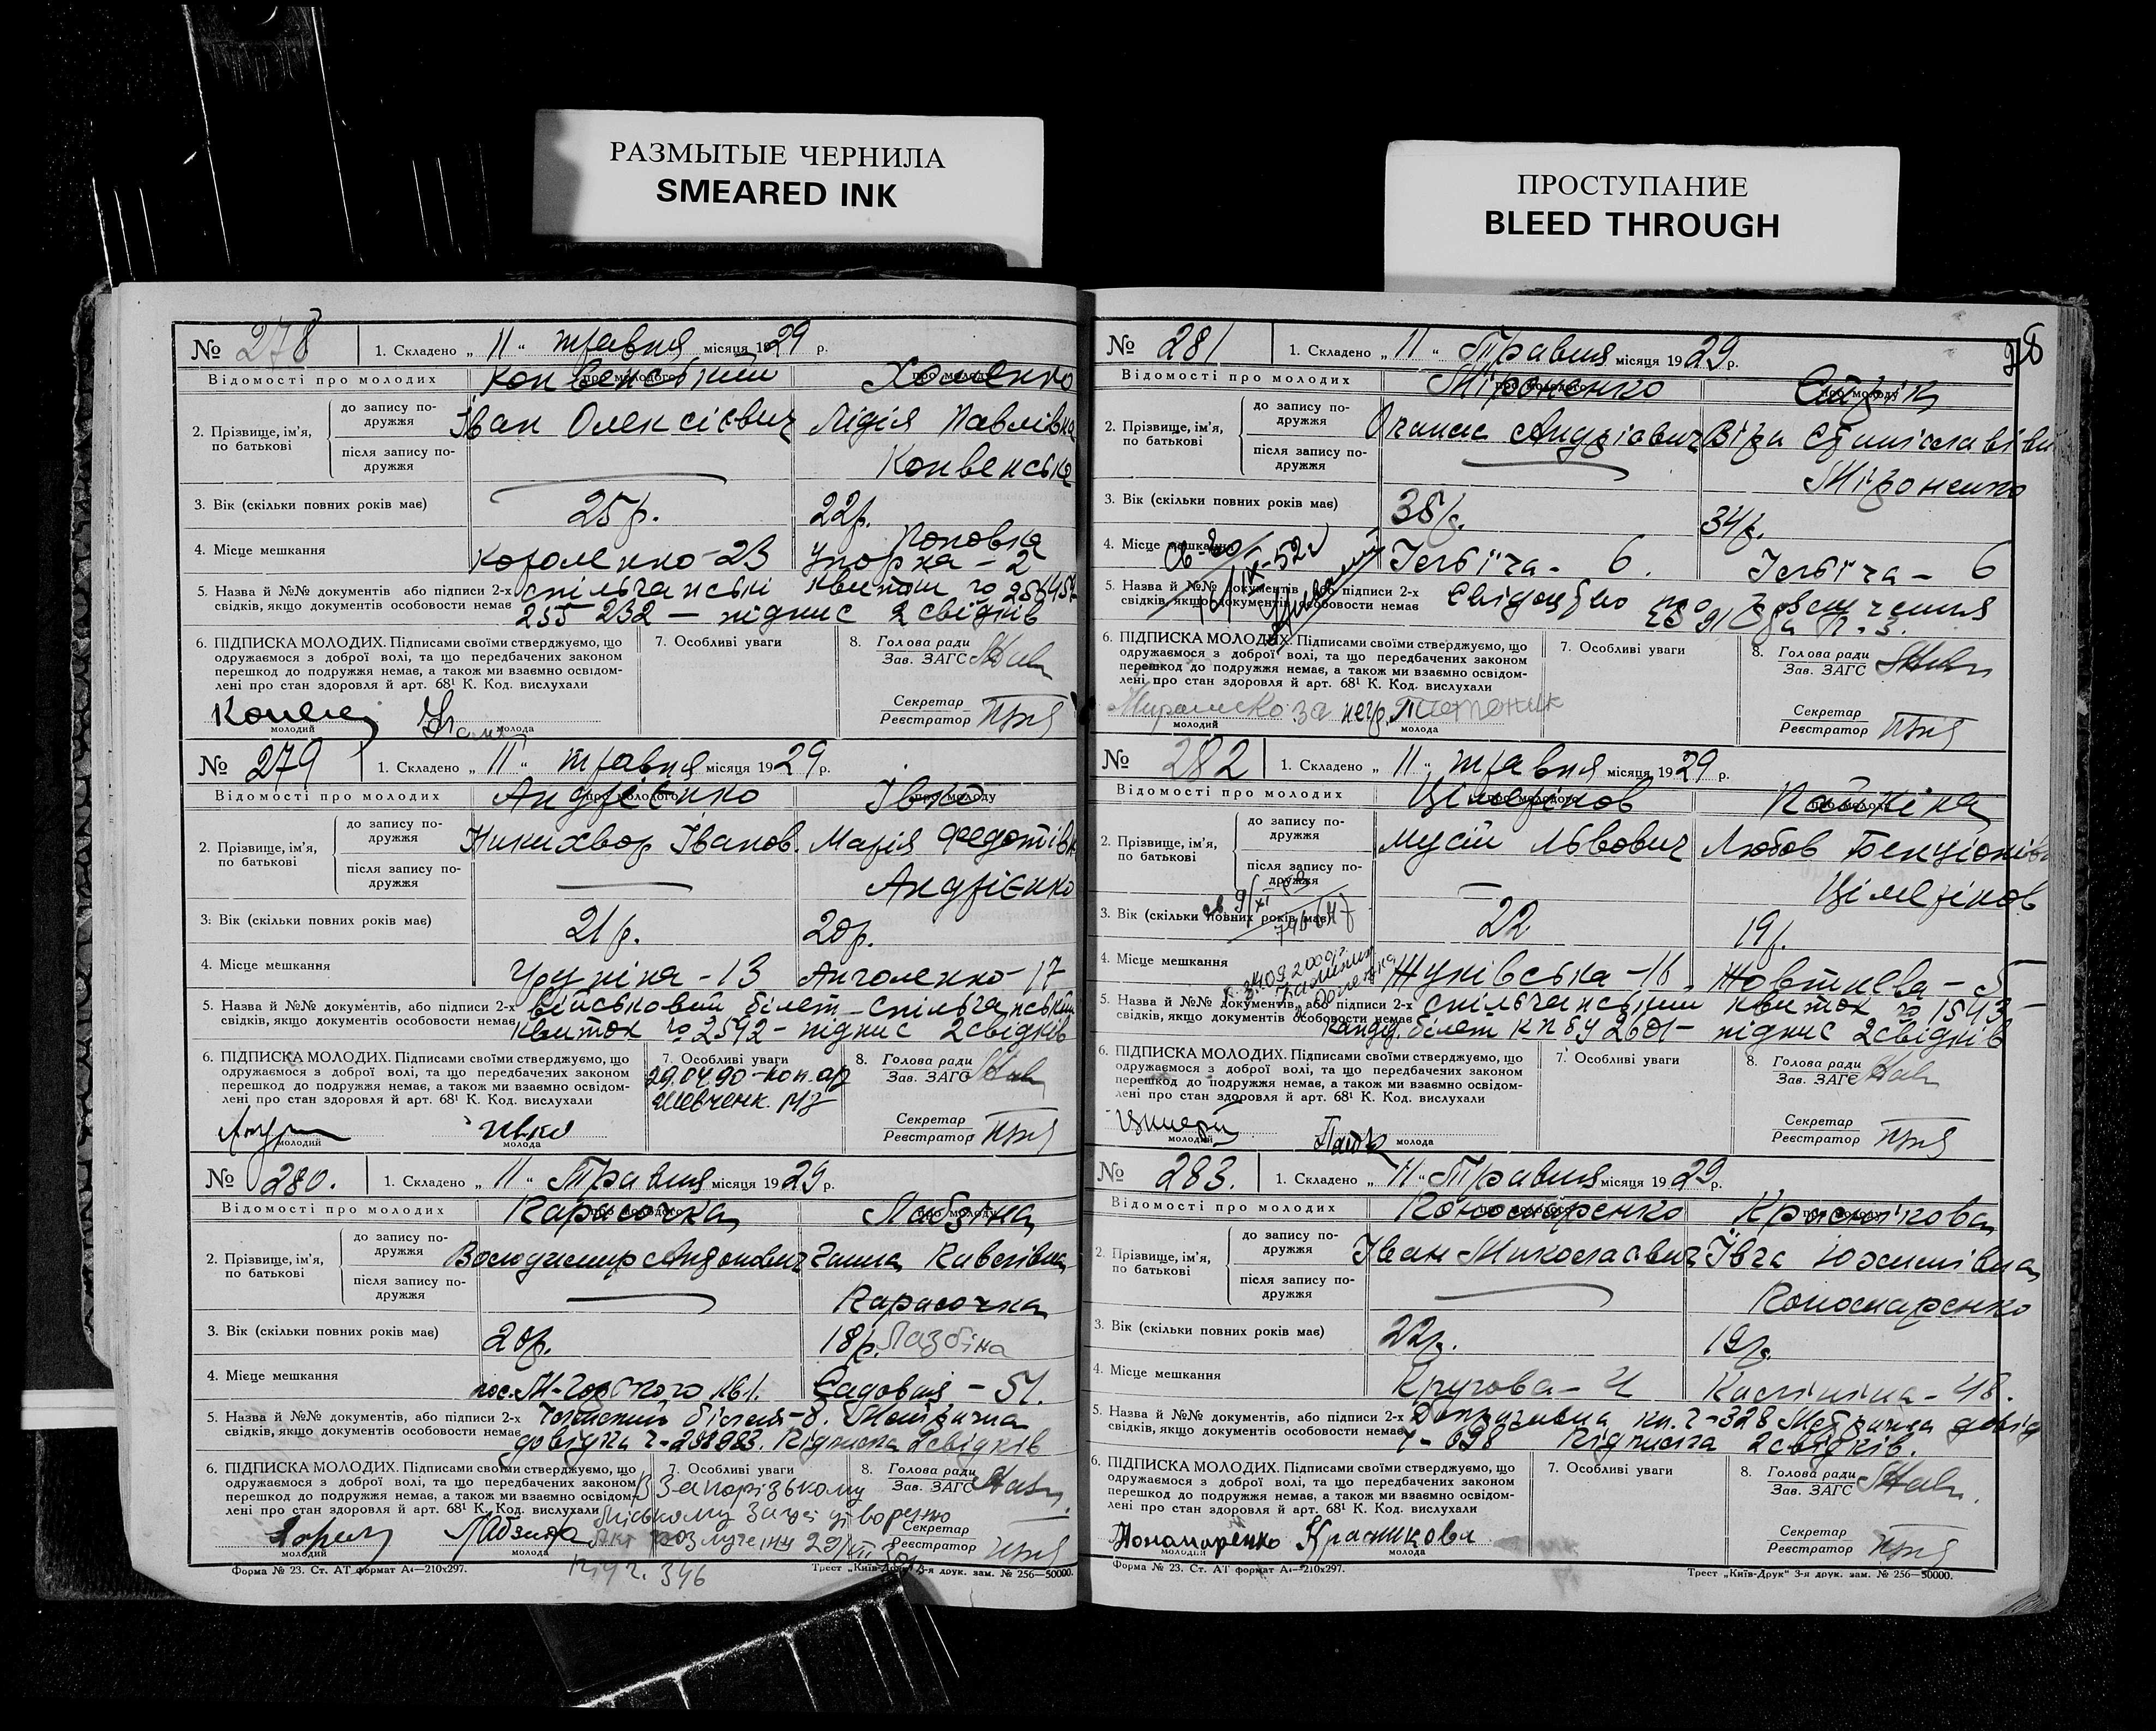 РАЗМЫТЫЕ ЧЕРНИЛА
SMEARED INK
ПРОСТУПАНИЕ
BLEED THROUGH
№ 278 1. Складено „ 11 “ травня місяця 1929 р.
Відомості про молодих про молодого про молоду
Конвенський
2. Прізвище, ім’я, по батькові
до запису подружжя Іван Олексієвич Лідія Павлівна
після запису подружжя Конвенська
3. Вік (скільки повних років має) 25 р. 22 р.
4. Місце мешкання Короленко - 23 Поповка - 2
5. Назва й №№ документів, або підписи 2-х спільчанські квитки
свідків, якщо документів особовости немає 255 232 — підпис 2 свідків
6. ПІДПИСКА МОЛОДИХ. Підписами своїми стверджуємо, що
одружаємося з доброї волі, та що передбачених законом
перешкод до подружжя немає, а також ми взаємно освідом-
лені про стан здоровля й арт. 68¹ К. Код. вислухали
молодий молода
7. Особливі уваги
8. Голова ради
Зав. ЗАГС
Секретар
Реєстратор
№ 279 1. Складено „ 11 “ травня місяця 1929 р.
Відомості про молодих про молодого про молоду
Андрієнко Івко
2. Прізвище, ім’я, по батькові
до запису подружжя Никихвор Іванов. Марія Федотівн
після запису подружжя Андрієнко
3. Вік (скільки повних років має) 21 р. 20 р.
4. Місце мешкання - 13 - 17
5. Назва й №№ документів, або підписи 2-х військовий білет - спільчанський
свідків, якщо документів особовости немає квиток № 2592 - підпис 2 свідків
6. ПІДПИСКА МОЛОДИХ. Підписами своїми стверджуємо, що
одружаємося з доброї волі, та що передбачених законом
перешкод до подружжя немає, а також ми взаємно освідом-
лені про стан здоровля й арт. 68¹ К. Код. вислухали
Ивко
молодий молода
7. Особливі уваги
29.04.90 - коп. ар
Шевченк.
8. Голова ради
Зав. ЗАГС
Секретар
Реєстратор
№ 280. 1. Складено „ 11 “ Травня місяця 1929 р.
Відомості про молодих про молодого про молоду
Карасочка Лабзіна
2. Прізвище, ім’я, по батькові
до запису подружжя Володимир Антонович Ганна
після запису подружжя Карасочка
3. Вік (скільки повних років має) 20 р. 18 р. Лазбіна
4. Місце мешкання пос. М-Горького №61. Садовия - 51.
5. Назва й №№ документів, або підписи 2-х Членський білет Метрична
свідків, якщо документів особовости немає довідка Підписи 2 свідків
6. ПІДПИСКА МОЛОДИХ. Підписами своїми стверджуємо, що
одружаємося з доброї волі, та що передбачених законом
перешкод до подружжя немає, а також ми взаємно освідом-
лені про стан здоровля й арт. 68¹ К. Код. вислухали
Лабзина
молодий молода
7. Особливі уваги
В Запорізькому
міському Загсі
Акт розлучення
346
8. Голова ради
Зав. ЗАГС
Секретар
Реєстратор
Форма № 23. Ст. АТ формат А4—210х297. Трест „Київ-Друк“ 3-я друк. зам. № 256—50000.
98
№ 281 1. Складено „ 11 “ Травня місяця 1929 р.
Відомості про молодих про молодого про молоду
Міроненко
2. Прізвище, ім’я, по батькові
до запису подружжя Опанас Андрієвич Віра Станіславівн
після запису подружжя Міроненко
3. Вік (скільки повних років має) 38 р. 34 р.
4. Місце мешкання - 6. - 6
5. Назва й №№ документів, або підписи 2-х Свідоцтво
свідків, якщо документів особовости немає
6. ПІДПИСКА МОЛОДИХ. Підписами своїми стверджуємо, що
одружаємося з доброї волі, та що передбачених законом
перешкод до подружжя немає, а також ми взаємно освідом-
лені про стан здоровля й арт. 68¹ К. Код. вислухали
за негр.
молодий молода
7. Особливі уваги
8. Голова ради
Зав. ЗАГС
Секретар
Реєстратор
№ 282 1. Складено „ 11 “ травня місяця 1929 р.
Відомості про молодих про молодого про молоду
Цімерінов Пайкіна
2. Прізвище, ім’я, по батькові
до запису подружжя Мусій Львович Любов Бенціонівн
після запису подружжя Цімерінов
3. Вік (скільки повних років має) 22 19 р.
4. Місце мешкання Жуківська - 16 Жовтнева - 5
5. Назва й №№ документів, або підписи 2-х спільчанський квиток № 1543 -
свідків, якщо документів особовости немає кандид. білет КПбУ 2601 - підпис 2 свідків
6. ПІДПИСКА МОЛОДИХ. Підписами своїми стверджуємо, що
одружаємося з доброї волі, та що передбачених законом
перешкод до подружжя немає, а також ми взаємно освідом-
лені про стан здоровля й арт. 68¹ К. Код. вислухали
молодий молода
7. Особливі уваги
8. Голова ради
Зав. ЗАГС
Секретар
Реєстратор
№ 283. 1. Складено „ 11 “ Травня місяця 1929 р.
Відомості про молодих про молодого про молоду
Пономаренко Краснікова
2. Прізвище, ім’я, по батькові
до запису подружжя Іван Миколаєвич Ївга Юхимівна
після запису подружжя Пономаренко
3. Вік (скільки повних років має) 22 р. 19 р.
4. Місце мешкання Кругова - 4 Калініна - 48.
5. Назва й №№ документів, або підписи 2-х кн. Ч-328 Метрична довід
свідків, якщо документів особовости немає Ч - 698 Підписи 2 свідків.
6. ПІДПИСКА МОЛОДИХ. Підписами своїми стверджуємо, що
одружаємося з доброї волі, та що передбачених законом
перешкод до подружжя немає, а також ми взаємно освідом-
лені про стан здоровля й арт. 68¹ К. Код. вислухали
Пономаренко Красникова
молодий молода
7. Особливі уваги
8. Голова ради
Зав. ЗАГС
Секретар
Реєстратор
Форма № 23. Ст. АТ формат А4—210х297. Трест „Київ-Друк“ 3-я друк. зам. № 256—50000.